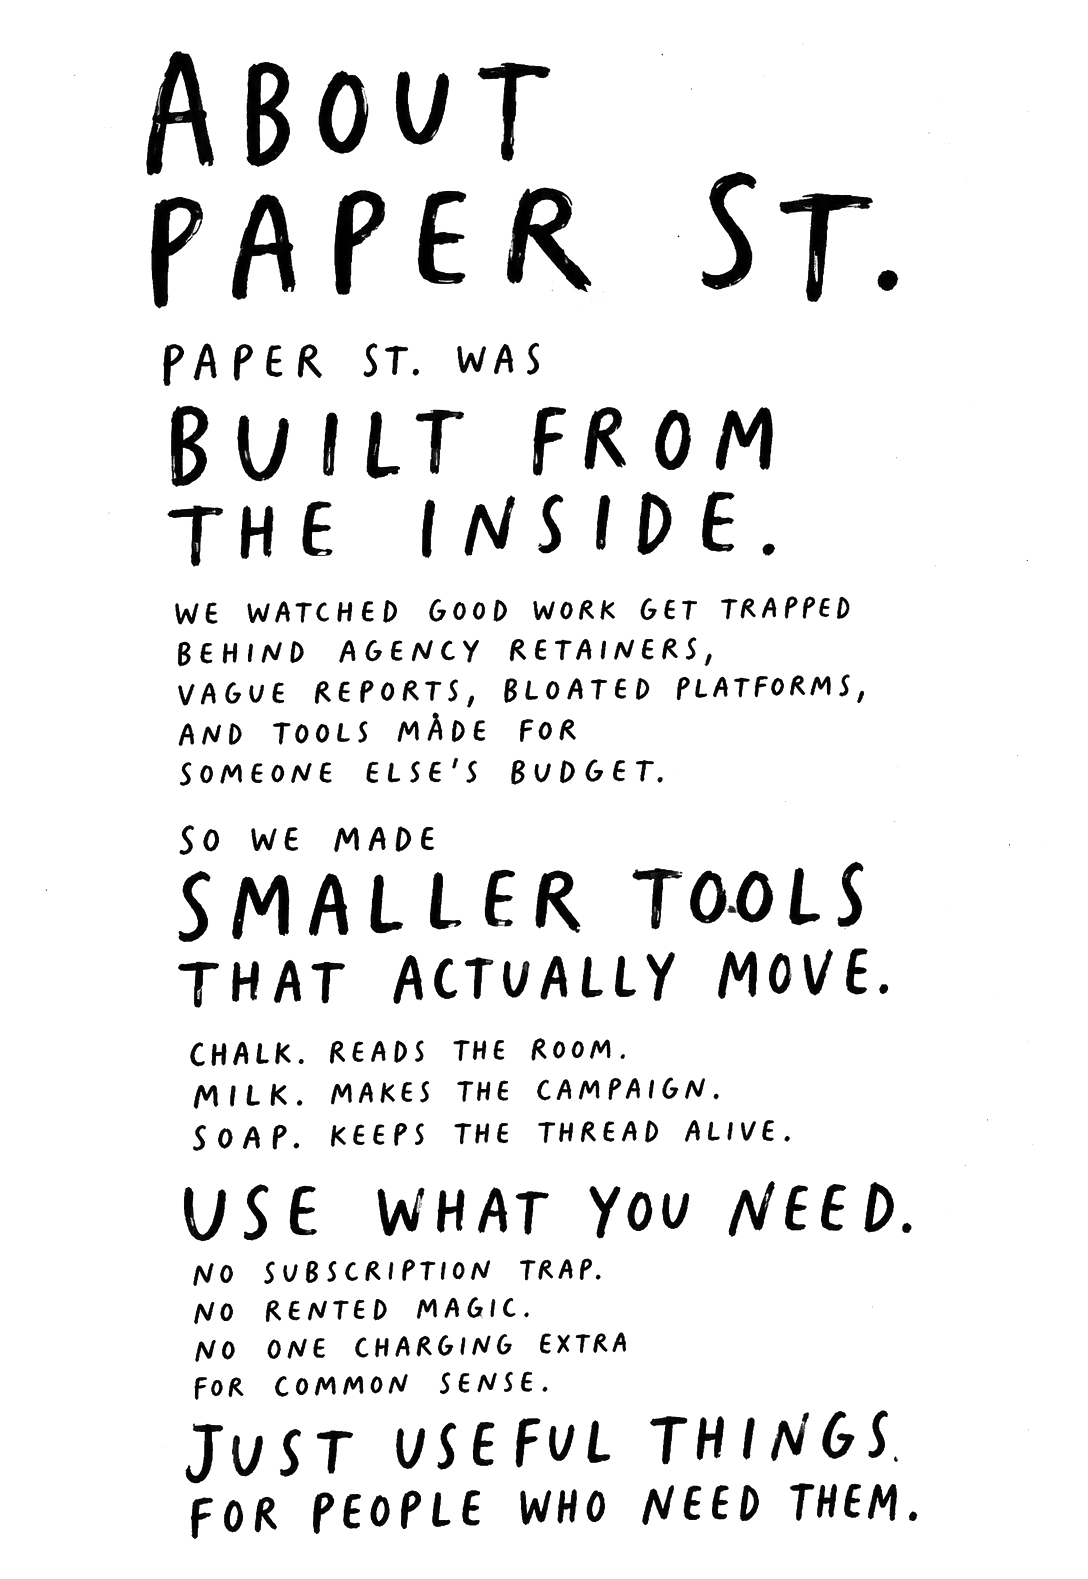 ABOUT
PAPER ST.
PAPER ST. WAS
BUILT FROM
THE INSIDE.
WE WATCHED GOOD WORK GET TRAPPED
BEHIND AGENCY RETAINERS,
VAGUE REPORTS, BLOATED PLATFORMS,
AND TOOLS MADE FOR
SOMEONE ELSE'S BUDGET.
SO WE MADE
SMALLER TOOLS
THAT ACTUALLY MOVE.
CHALK. READS THE ROOM.
MILK. MAKES THE CAMPAIGN.
SOAP. KEEPS THE THREAD ALIVE.
USE WHAT YOU NEED.
NO SUBSCRIPTION TRAP.
NO RENTED MAGIC.
NO ONE CHARGING EXTRA
FOR COMMON SENSE.
JUST USEFUL THINGS.
FOR PEOPLE WHO NEED THEM.